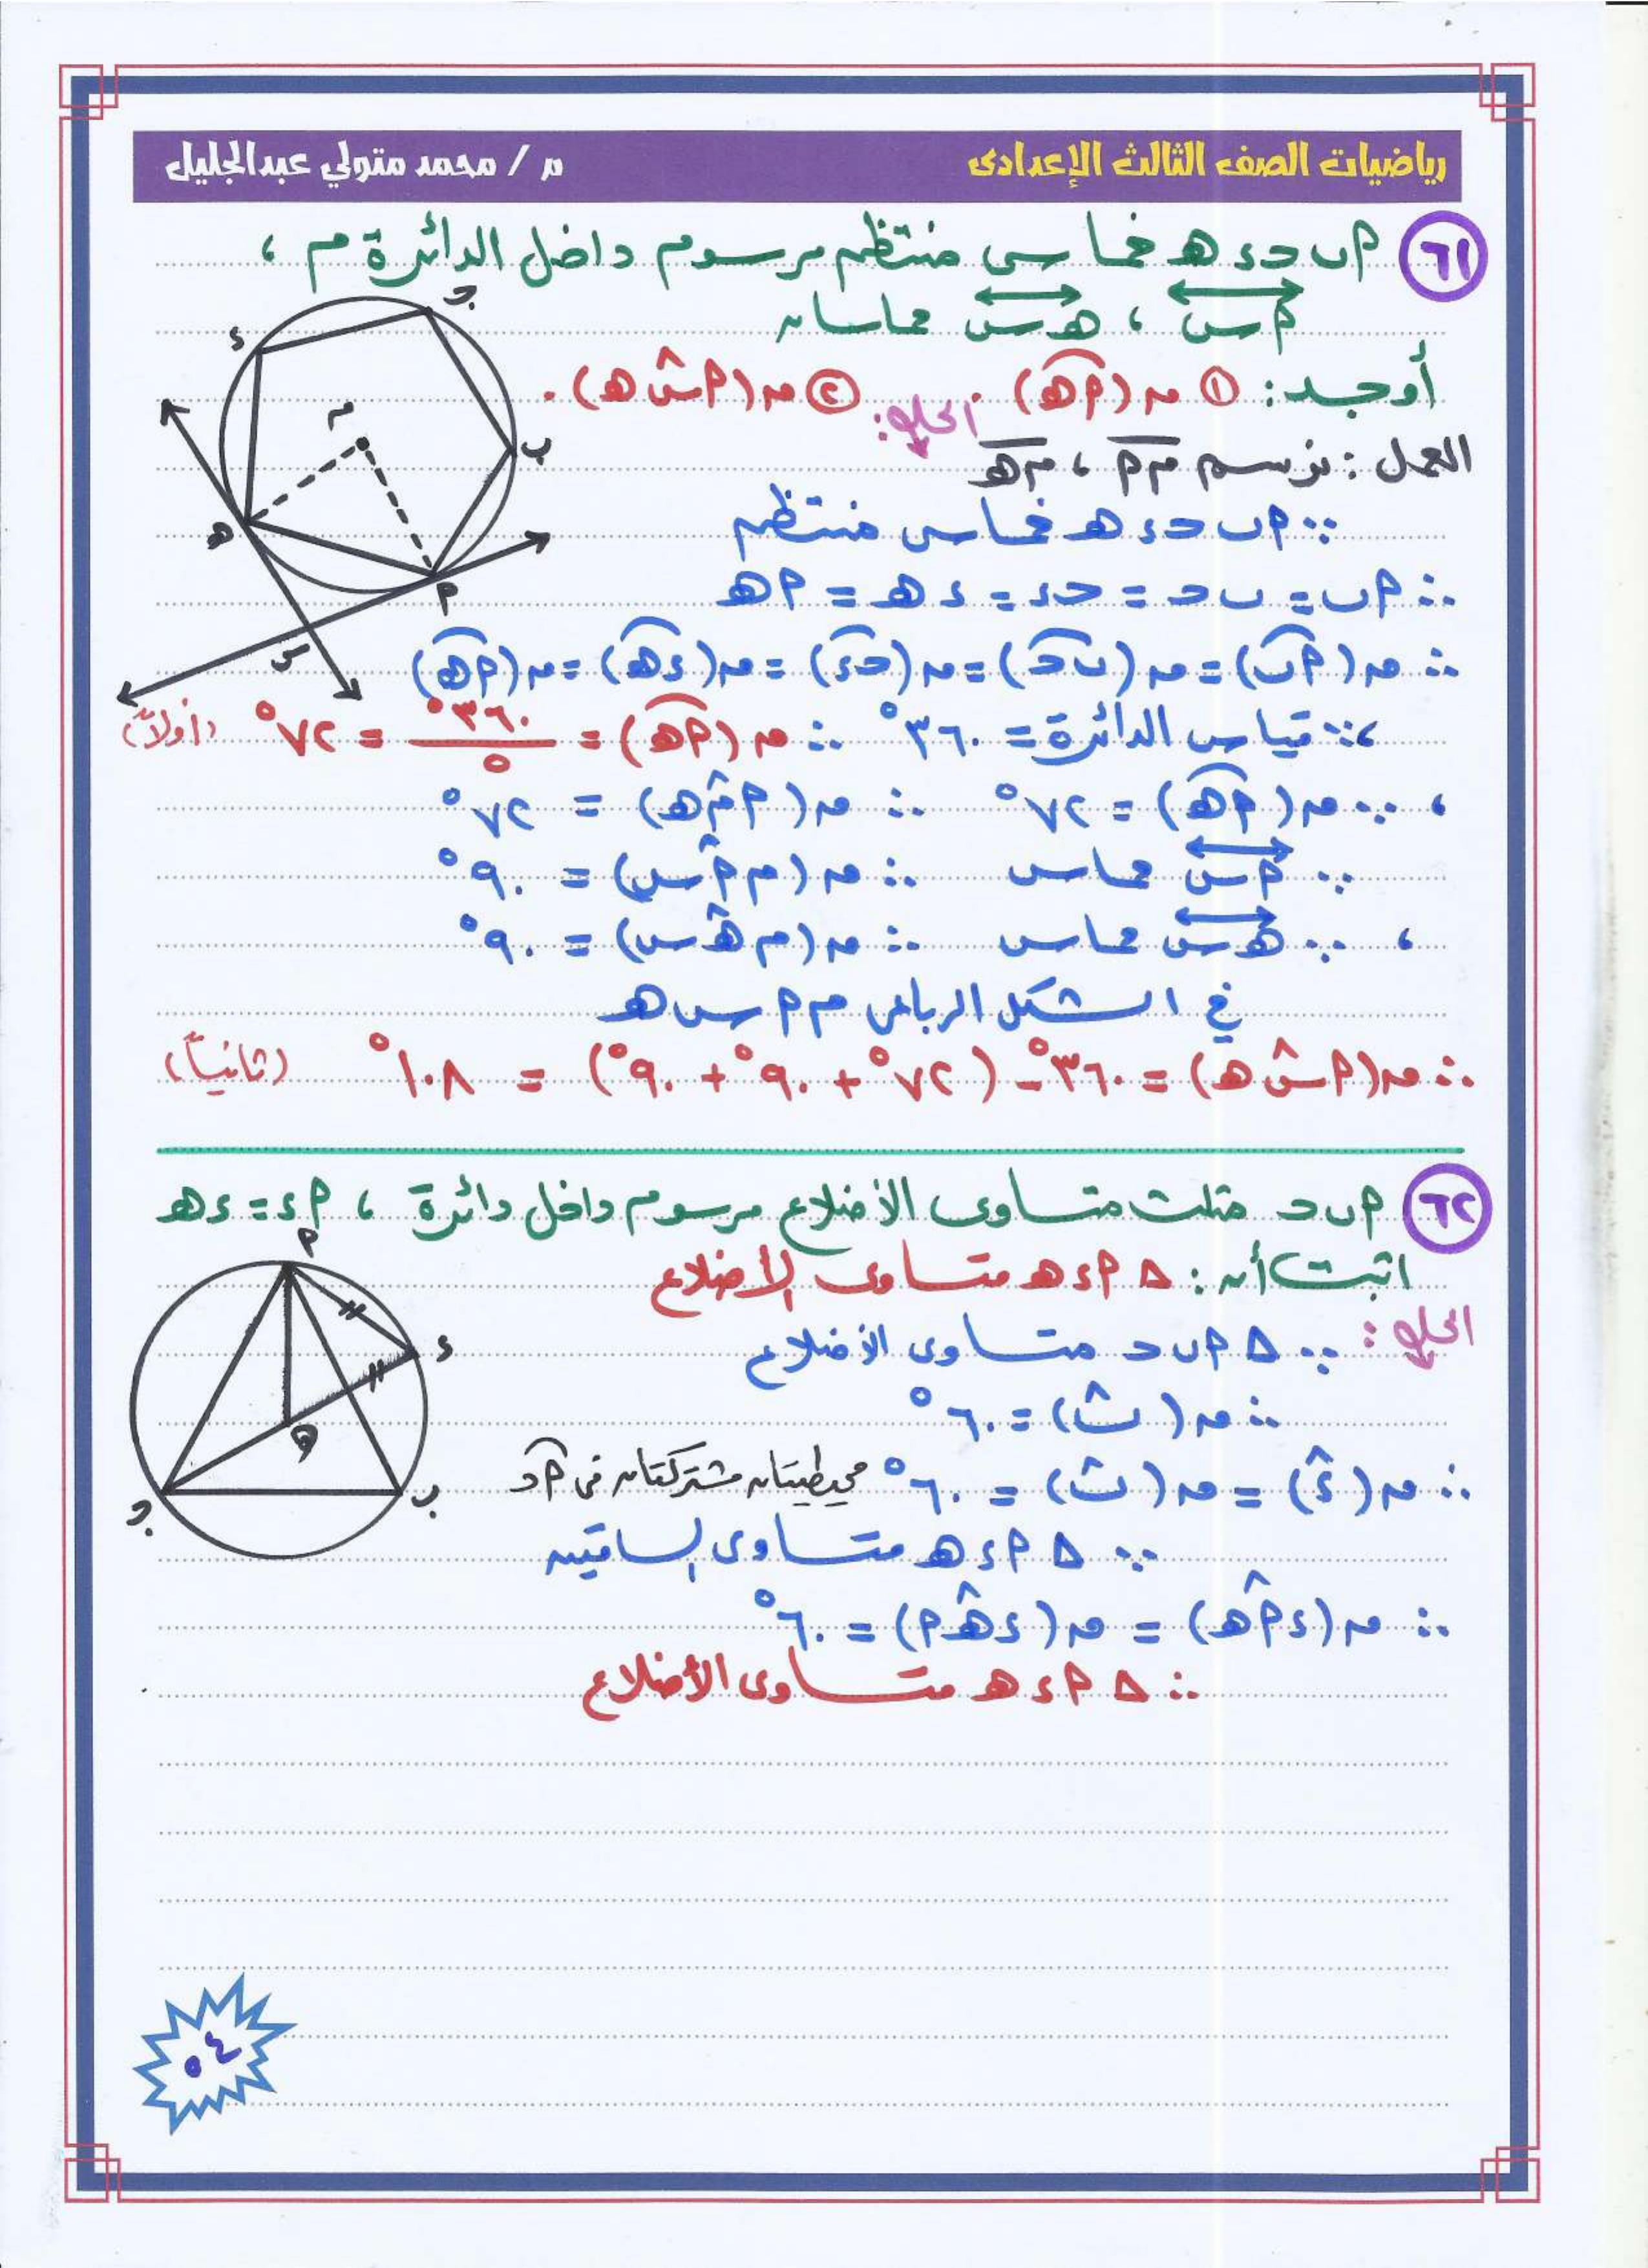 رياضيات الصف الثالث الإعدادى
م / محمد متولي عبدالجليل
٦١ أ ب ج د هـ خماسى منتظم مرسوم داخل الدائرة م ،
أس ، هـ س مماسان
أوجد : ① م (أهـ) . ② م (أسهـ) .
الحل :
العمل : نرسم م أ ، م هـ
∵ أ ب ج د هـ خماسى منتظم
∴ أ ب = ب ج = ج د = د هـ = أ هـ
∴ م (أب) = م (ب ج) = م (ج د) = م (د هـ) = م (أهـ)
، ∵ قياس الدائرة = ٣٦٠° ∴ م (أهـ) = ٣٦٠° / ٥ = ٧٢° (أولاً)
، ∵ م (أهـ) = ٧٢° ∴ م (أ م هـ) = ٧٢°
∵ أس مماس ∴ م (م أ س) = ٩٠°
، ∵ هـ س مماس ∴ م (م هـ س) = ٩٠°
فى الشكل الرباعى م أ س هـ
∴ م (أ س هـ) = ٣٦٠° - (٧٢° + ٩٠° + ٩٠°) = ١٠٨° (ثانياً)
د
ج
ب
م
هـ
أ
س
٦٢ أ ب ج مثلث متساوى الأضلاع مرسوم داخل دائرة ، أ د = د هـ
اثبت أن : Δ أ د هـ متساوى الأضلاع
الحل : ∵ Δ أ ب ج متساوى الأضلاع
∴ م (بَ) = ٦٠°
∴ م (دَ) = م (بَ) = ٦٠° محيطيتان مشتركتان فى أج
∵ Δ أ د هـ متساوى الساقين
∴ م (د أ هـ) = م (د هـ أ) = ٦٠°
∴ Δ أ د هـ متساوى الأضلاع
أ
د
هـ
ب
ج
٥٤